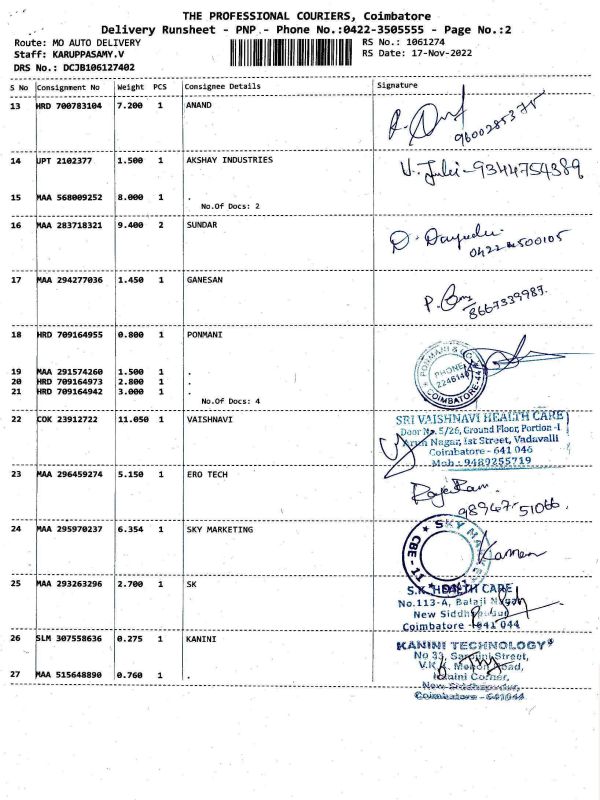 THE PROFESSIONAL COURIERS, Coimbatore
Delivery Runsheet - PNP - Phone No.:0422-3505555 - Page No.:2
Route: MO AUTO DELIVERY RS No.: 1061274
Staff: KARUPPASAMY.V RS Date: 17-Nov-2022
DRS No.: DCJB106127402
S No Consignment No Weight PCS Consignee Details Signature
13 HRD 700783104 7.200 1 ANAND
9600285375
14 UPT 2102377 1.500 1 AKSHAY INDUSTRIES
V. 9344754389
15 MAA 568009252 8.000 1 .
No.Of Docs: 2
16 MAA 283718321 9.400 2 SUNDAR
D.
17 MAA 294277036 1.450 1 GANESAN
P.
8667339987.
18 HRD 709164955 0.800 1 PONMANI
PONMANI & CO
PHONE
COIMBATORE-44
19 MAA 291574260 1.500 1 .
20 HRD 709164973 2.800 1 .
21 HRD 709164942 3.000 1 .
No.Of Docs: 4
22 COK 23912722 11.050 1 VAISHNAVI
SRI VAISHNAVI HEALTH CARE
Door No. 5/26, Ground Floor, Portion-1
Arun Nagar, 1st Street, Vadavalli
Coimbatore - 641 046
Mob : 9489255719
23 MAA 296459274 5.150 1 ERO TECH
RajaRam.
98947-51066.
24 MAA 295970237 6.354 1 SKY MARKETING
SKY
CBE-11
25 MAA 293263296 2.700 1 SK
S.K. HEALTH CARE
No.113-A, Balaji Nagar
New
Coimbatore - 641 044
26 SLM 307558636 0.275 1 KANINI
KANINI TECHNOLOGY
No 33, Sarojini Street,
V.K.K. Menon Road,
Kanini Corner,
New Siddhapudur,
Coimbatore - 641044
27 MAA 515648890 0.760 1 .